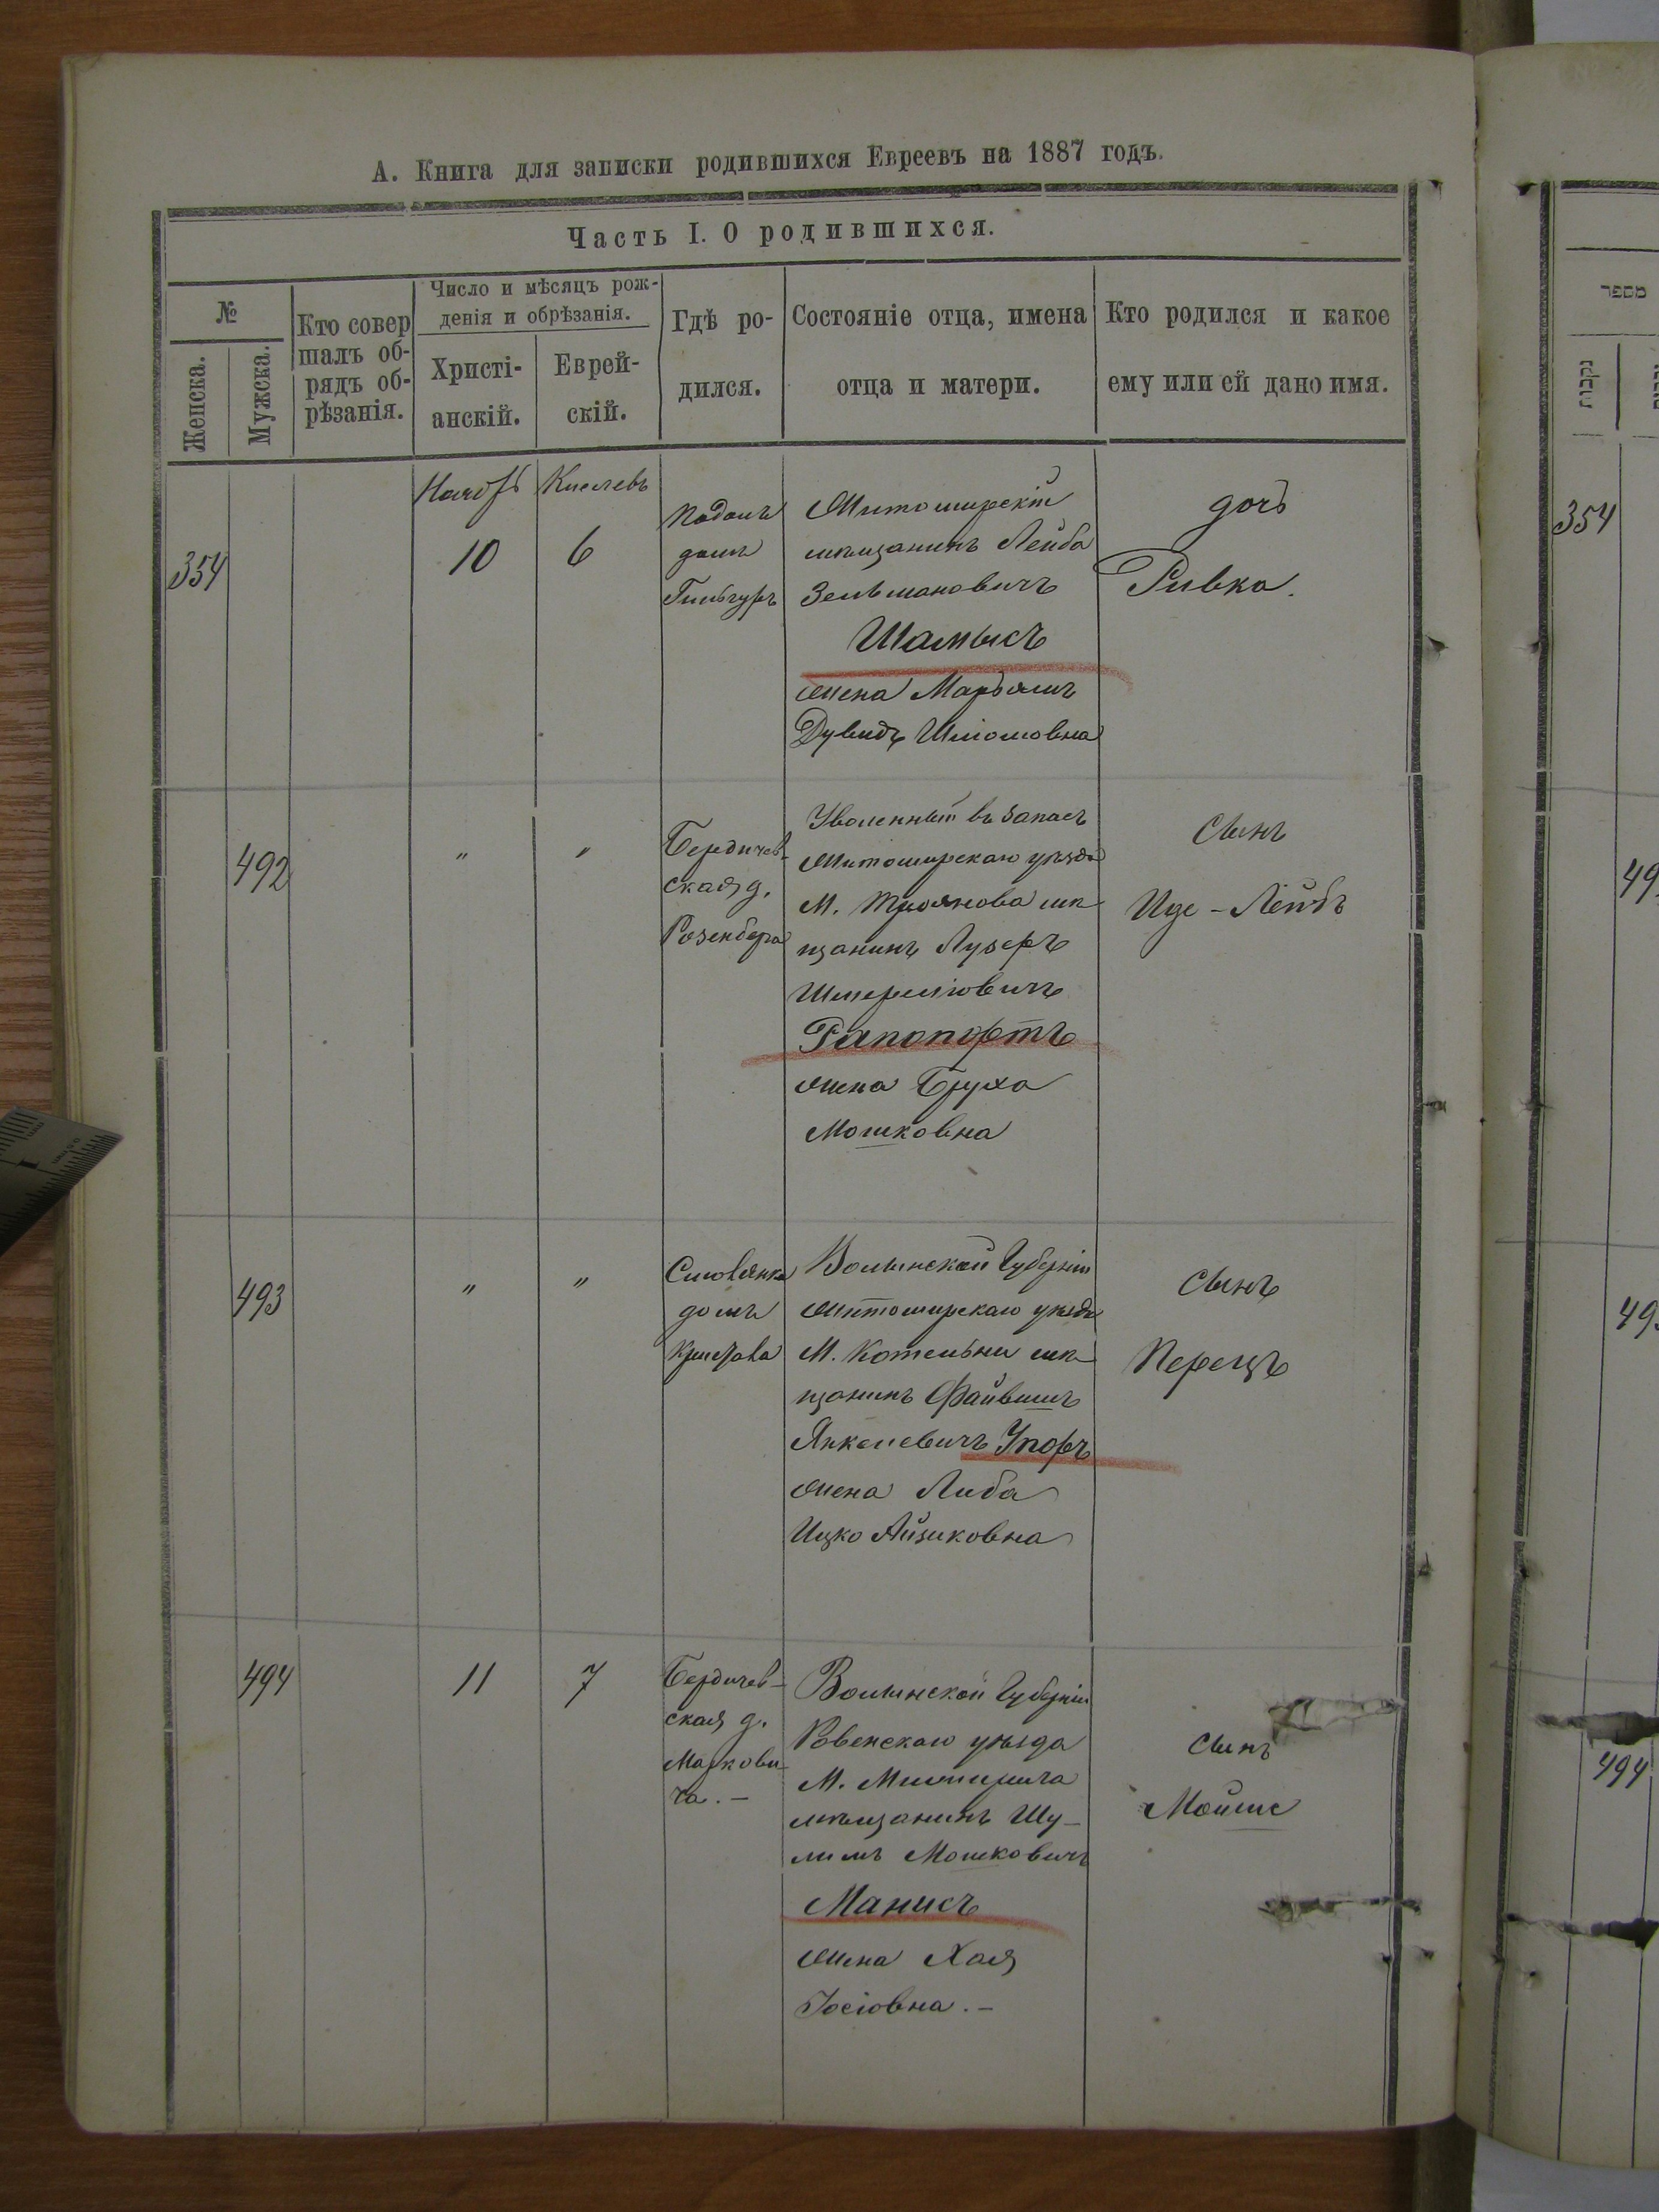 А. Книга для записки родившихся Евреевъ на 1887 годъ.
Часть I. О родившихся.
№
Женска.
Мужска.
Кто совер
шалъ об-
рядъ об-
рѣзанія.
Число и мѣсяцъ рож-
денія и обрѣзанія.
Христі-
анскій.
Еврей-
скій.
Гдѣ ро-
дился.
Состояніе отца, имена
отца и матери.
Кто родился и какое
ему или ей дано имя.
354
Ноябр
10
Кислевъ
6
домъ
Житомирскій
мѣщанинъ Лейба
Зельмановичъ
Шамысъ
жена Марьямъ
Дувидъ Шліомовна
дочь
Ривка.
492
"
"
Бердичев-
ская д.
Розенберга
Уволенный въ запасъ
Житомирскаго уѣзда
М. Троянова мѣ-
щанинъ Лузеръ
Шмерліовичъ
Рапопортъ
жена Бруха
Мошковна
Сынъ
Иде-Лейбъ
493
"
"
домъ
Волынской Губерніи
Житомирскаго уѣзда
М. Котельни мѣ-
щанинъ Файвишъ
Янкелевичъ Упоръ
жена Либа
Ицко Айзиковна
Сынъ
Перецъ
494
11
7
Бердичев-
ская д.
Маркови-
ча.-
Волынской Губерніи
Ровенскаго уѣзда
М.
мѣщанинъ Шу-
лимъ Мошковичъ
Манисъ
жена Хая
Іосіовна.-
Сынъ
Мойше
מספר
נקבות
354
49
49
494